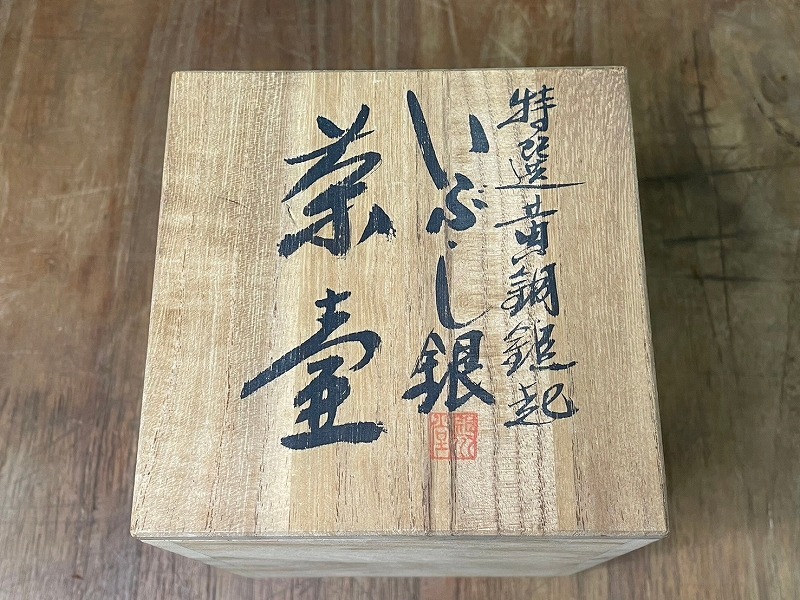 特選黄銅鎚起
いぶし銀
茶壷